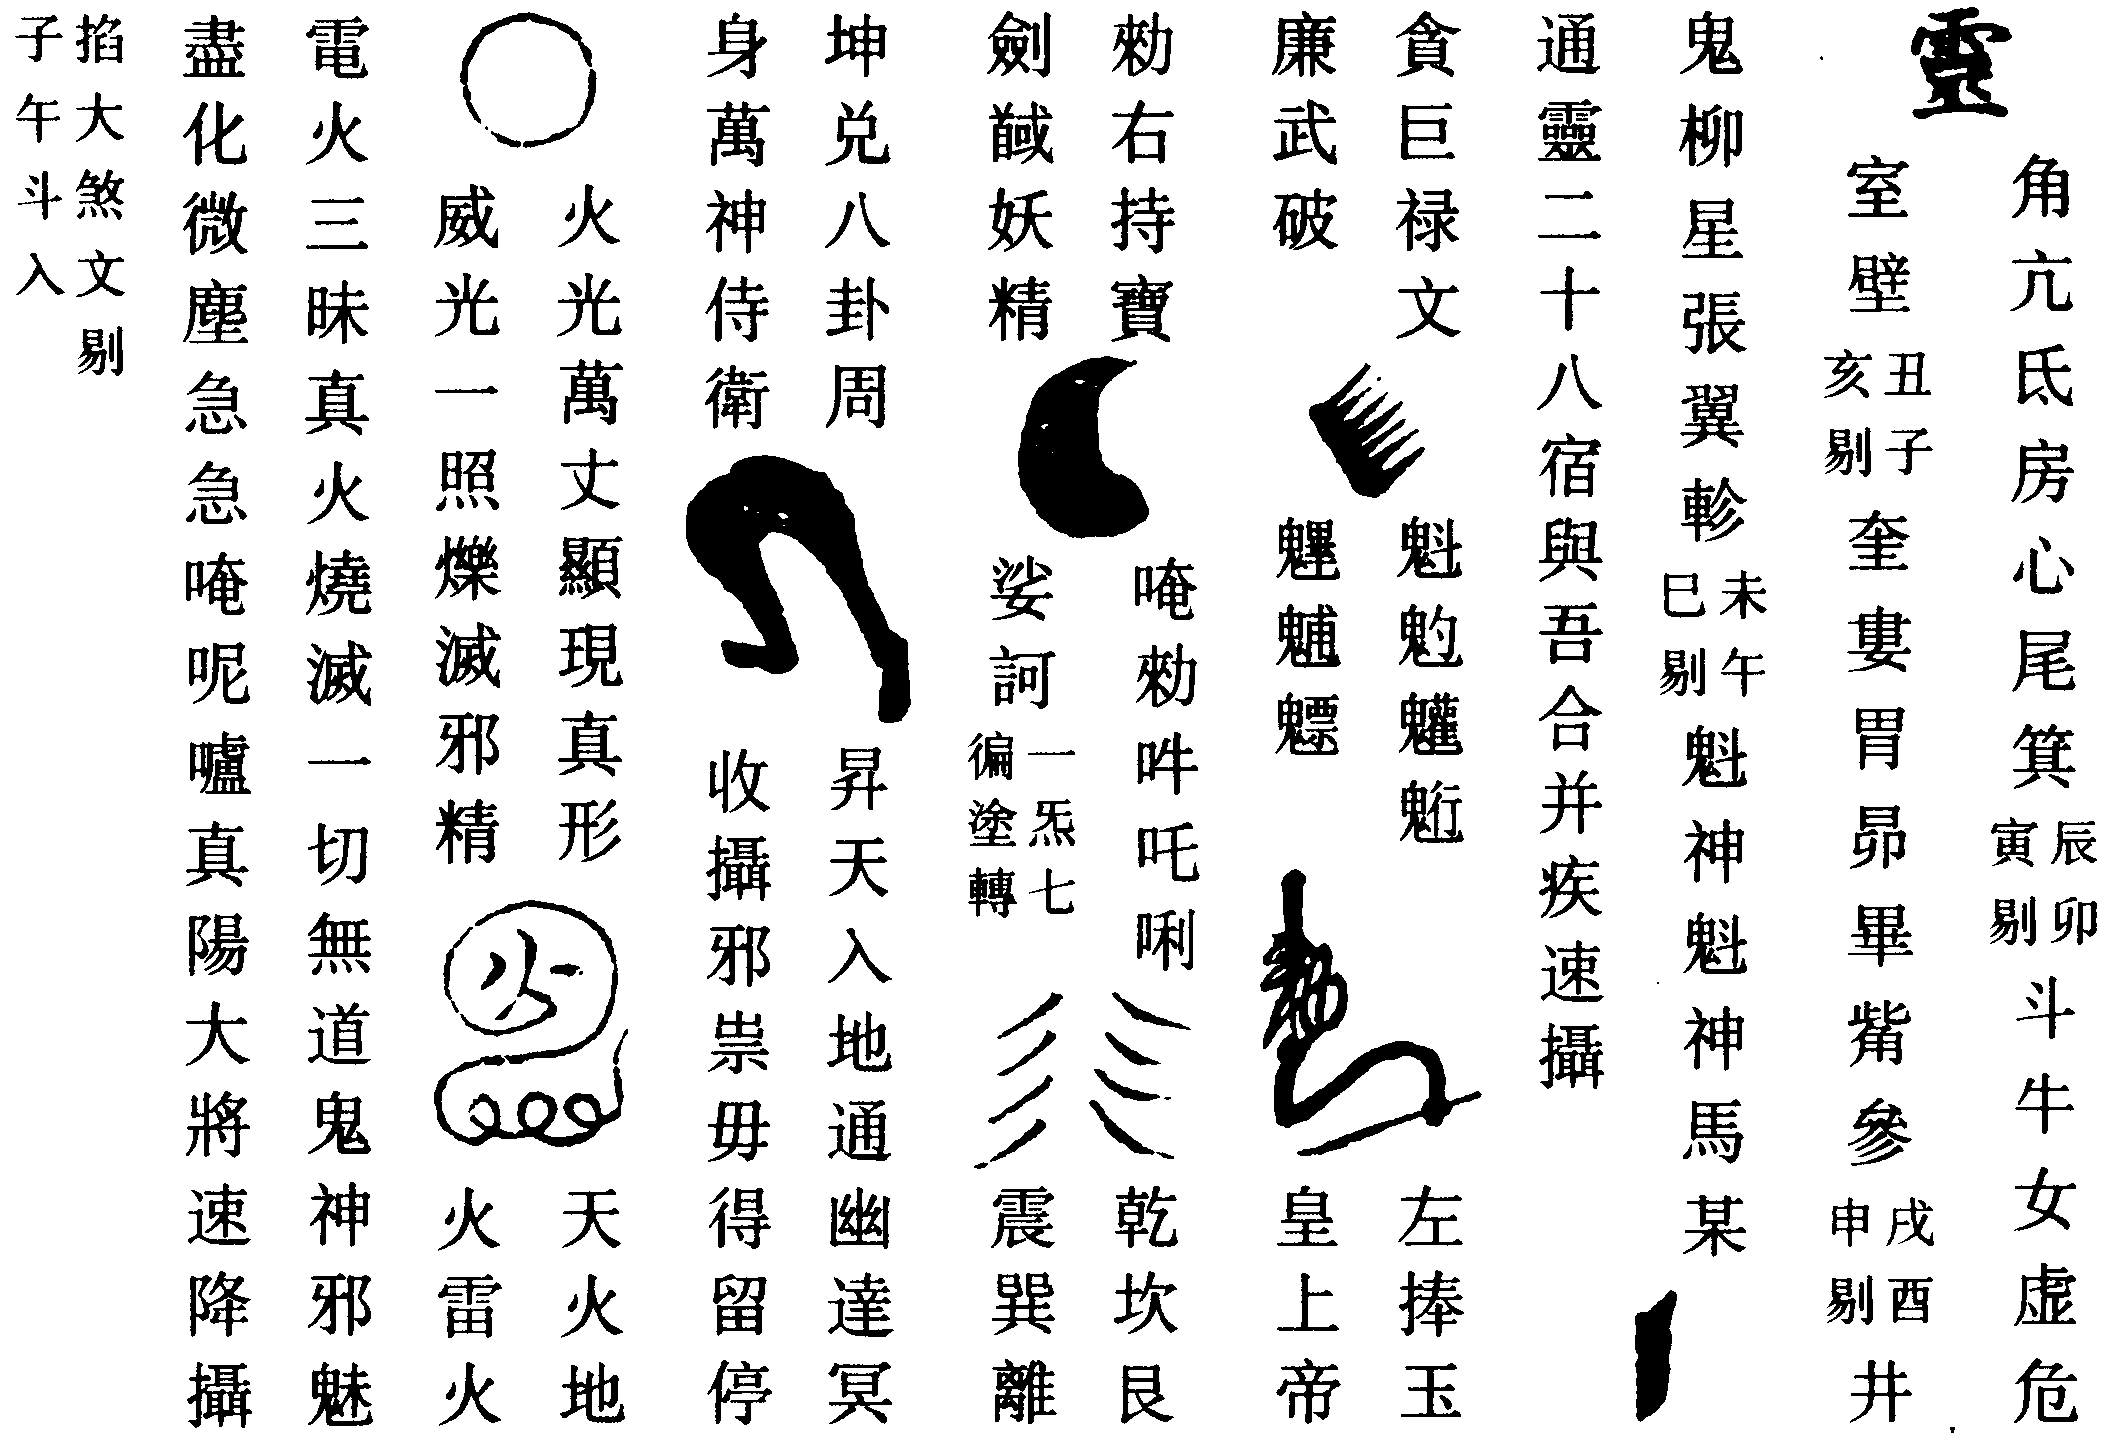 靈
角亢氐房心尾箕辰卯寅剔斗牛女虛危
室壁丑子亥剔奎婁胃昴畢觜參戌酉申剔井
鬼柳星張翼軫未午巳剔魁神魁神馬某
通靈二十八宿與吾合并疾速攝
貪巨禄文
廉武破
魁魓魒
左捧玉
皇上帝
勑右持寶
劍馘妖精
唵勑吽吒唎
娑訶一炁七徧塗轉
乾坎艮
震巽離
坤兌八卦周
身萬神侍衛
昇天入地通幽達冥
收攝邪祟毋得留停
火光萬丈顯現真形
威光一照爍滅邪精
火
天火地
火雷火
電火三昧真火燒滅一切無道鬼神邪魅
盡化微塵急急唵呢嚧真陽大將速降攝
掐大煞文剔
子午斗入